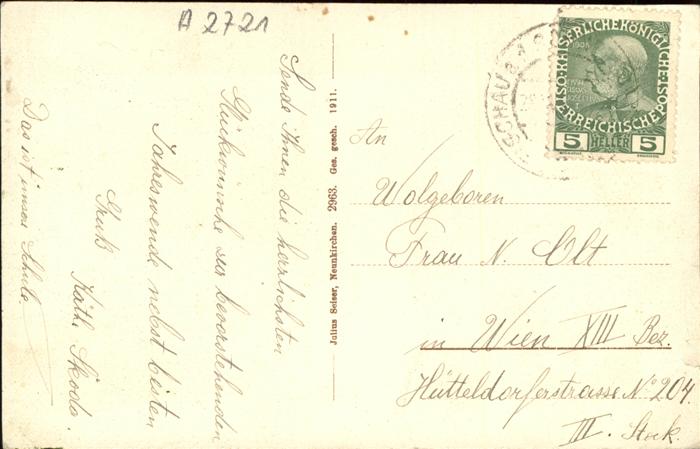 A 2721
Sende Ihnen die herzlichsten
Glückwünsche zur bevorstehenden
Jahreswende nebst besten
Gruß
Käth. Skoda.
Das ist unsere Schule.
Julius Seiser, Neunkirchen. 2963. Ges. gesch. 1911.
An
Wolgeboren
Frau N. Olt
in Wien XIII Bez.
Hütteldorferstrasse No 204.
III. Stock.
SCHAU
KAISERLICHE KÖNIGLICHE
ÖSTERREICHISCHE POST
5 HELLER 5